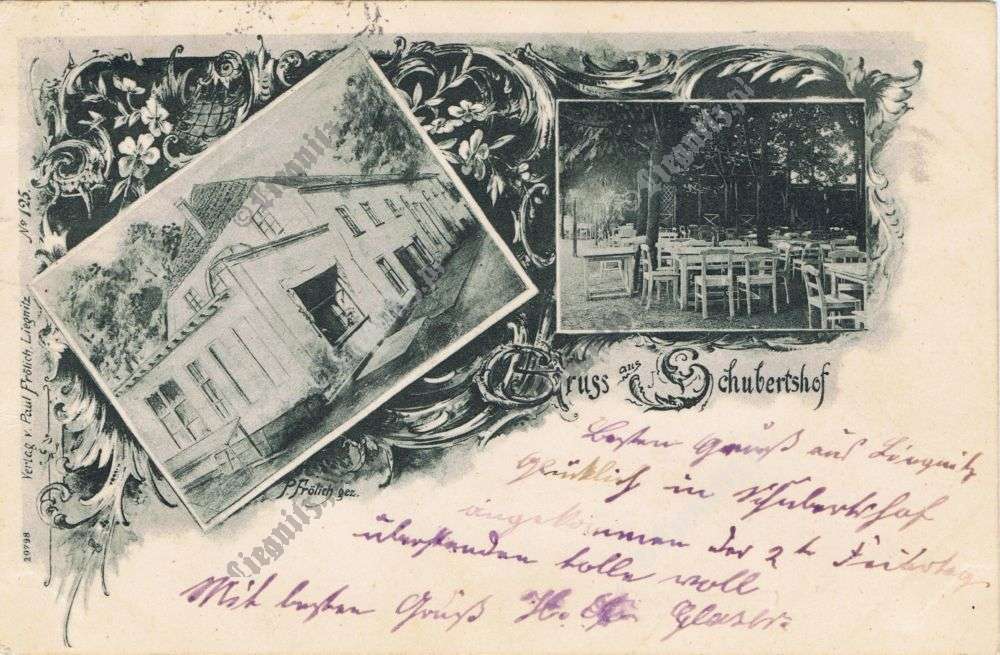 Gruss aus Schubertshof
Besten Gruß aus Liegnitz
Glücklich in Schubertshof
angekommen der 2te Feiertag
überstanden tolle voll
Mit besten Gruß H. Glaser.
P. Frölich gez.
Verlag v. Paul Frölich, Liegnitz No 125.
29798
© Liegnitz.pl
Liegnitz.pl
Liegnitz.pl